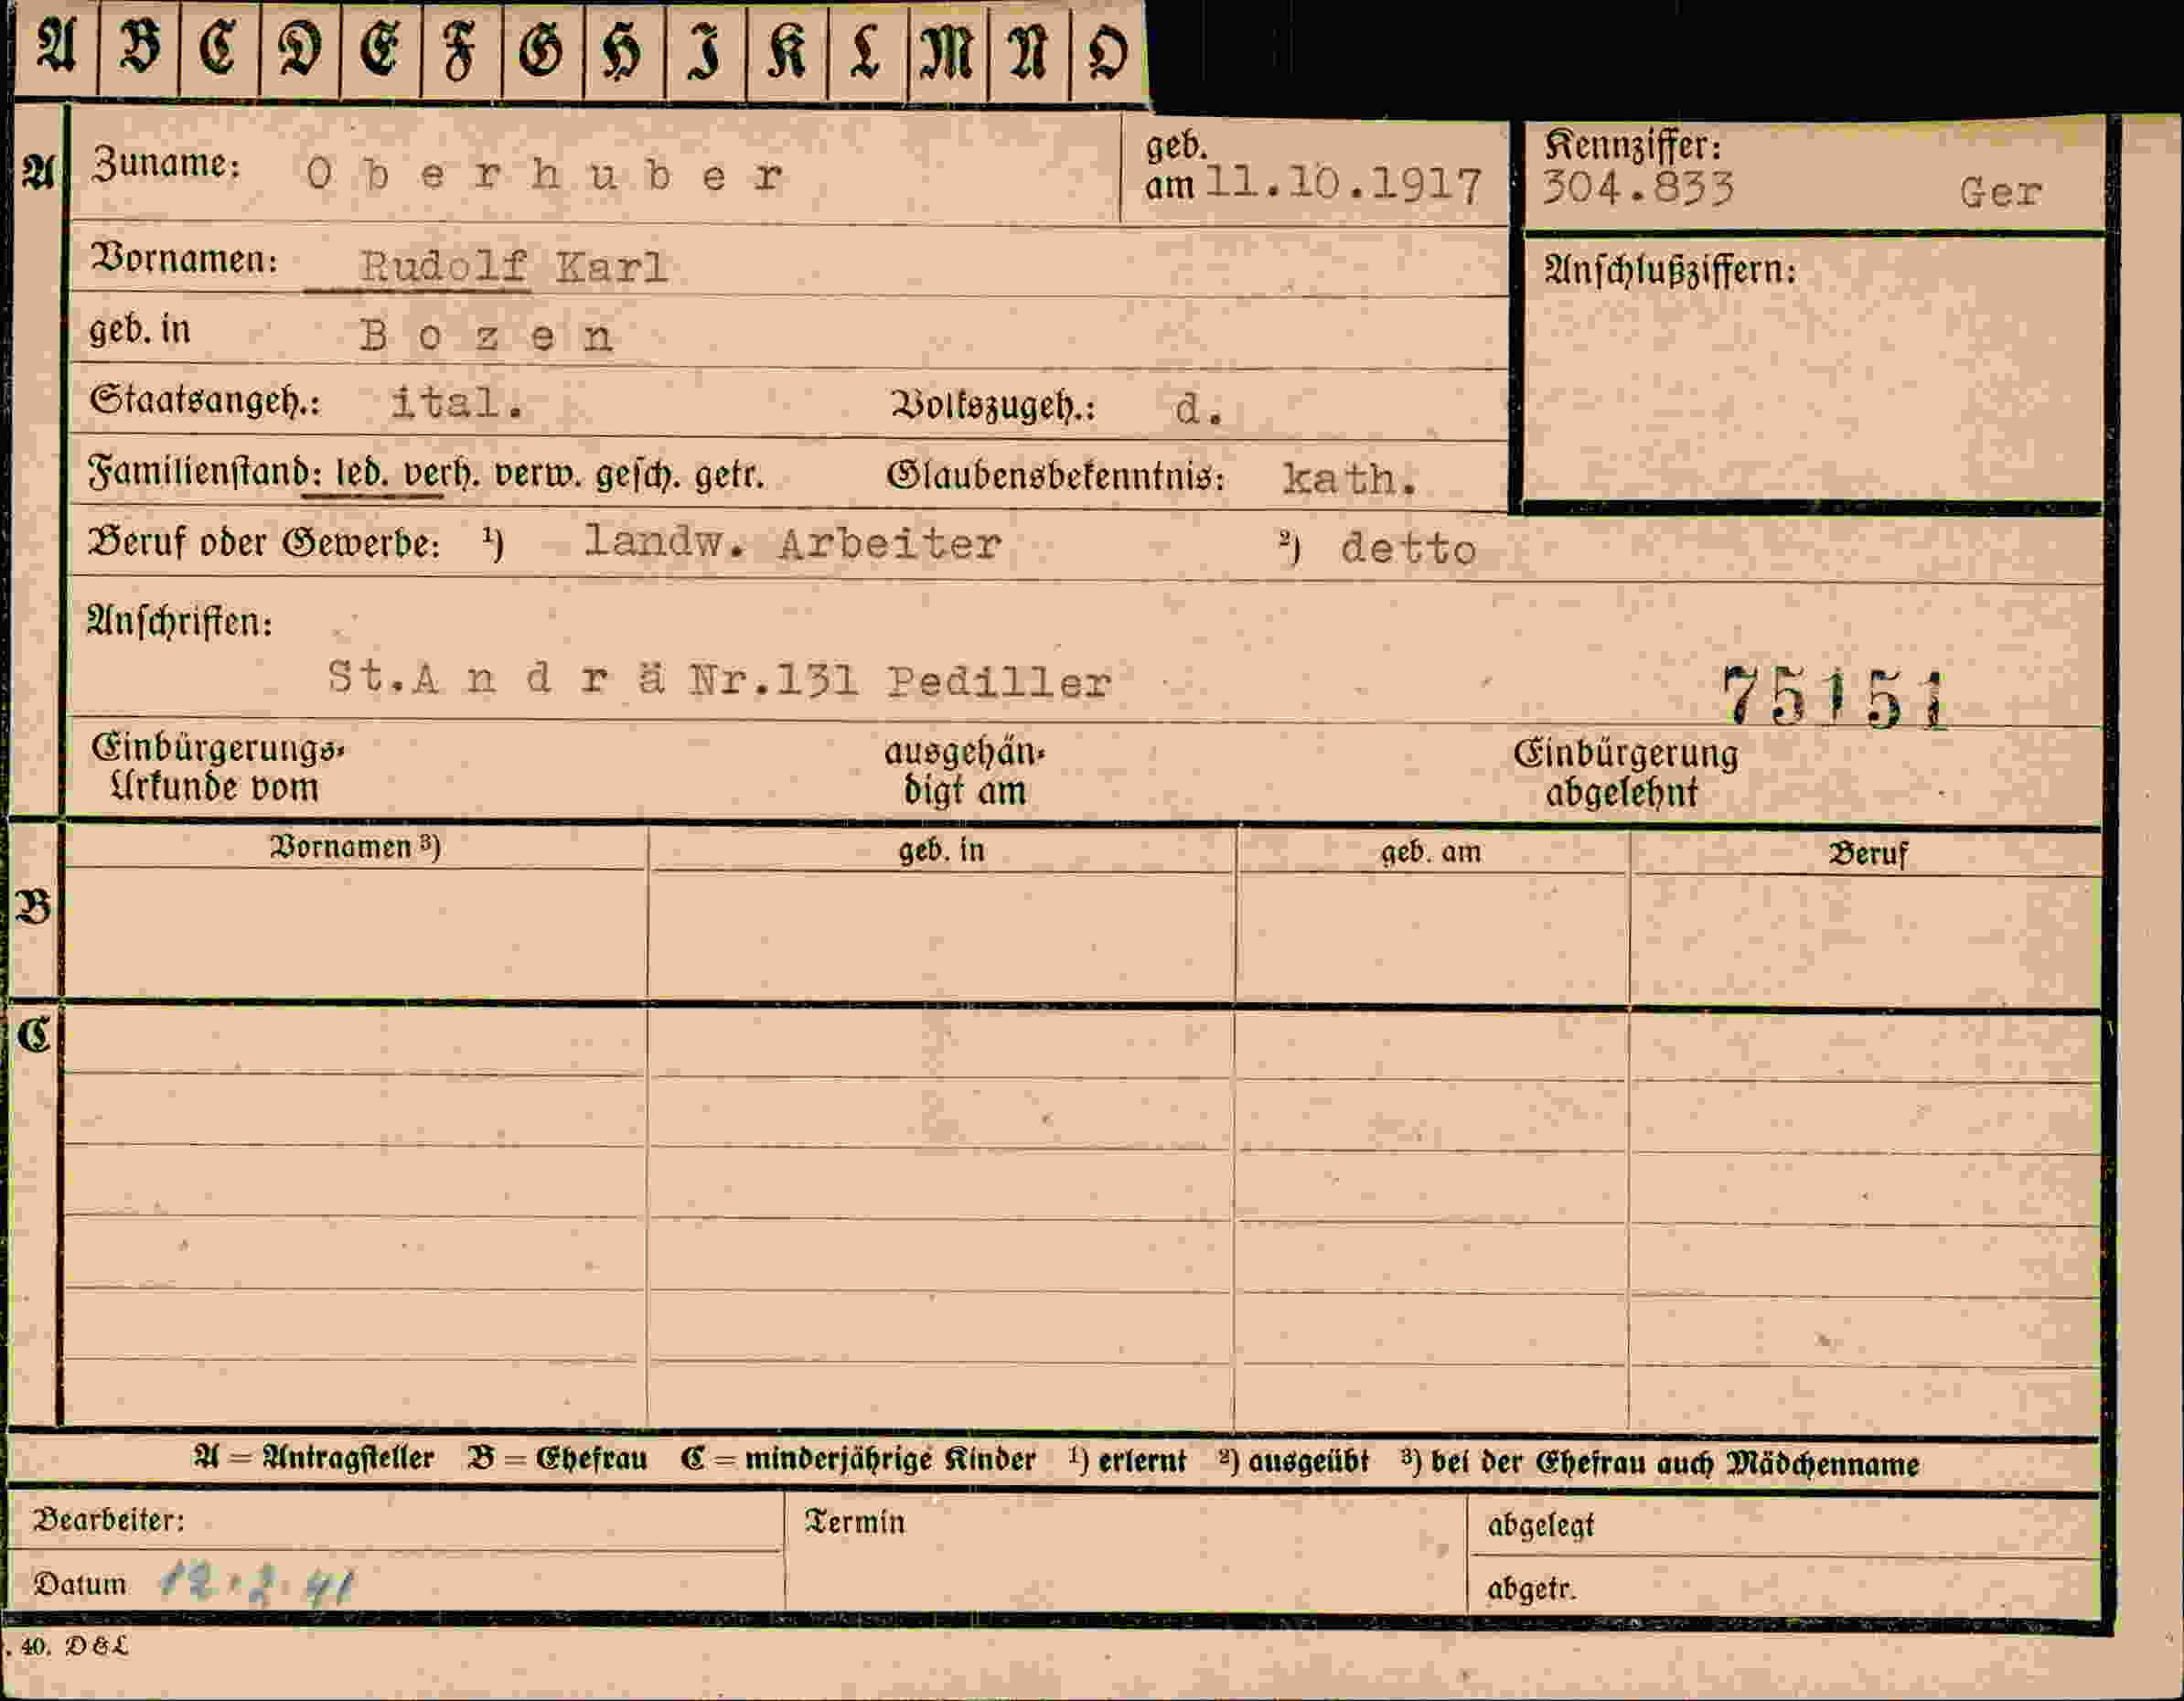 A B C D E F G H I K L M N O
A Zuname: Oberhuber geb. am 11.10.1917 Kennziffer: 304.833 Ger
Vornamen: Rudolf Karl Anschlußziffern:
geb. in Bozen
Staatsangeh.: ital. Volkszugeh.: d.
Familienstand: led. verh. verw. gesch. getr. Glaubensbekenntnis: kath.
Beruf oder Gewerbe: ¹) landw. Arbeiter ²) detto
Anschriften:
St.Andrä Nr.131 Pediller 75151
Einbürgerungs- ausgehän- Einbürgerung
Urkunde vom digt am abgelehnt
Vornamen ³) geb. in geb. am Beruf
B
C
A = Antragsteller B = Ehefrau C = minderjährige Kinder ¹) erlernt ²) ausgeübt ³) bei der Ehefrau auch Mädchenname
Bearbeiter: Termin abgelegt
Datum 12.2.41 abgetr.
. 40. D&L